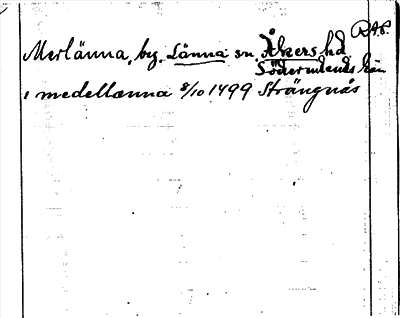 RAP.
Merlänna, by. Länna sn Åkers hd
Södermanlands län
i medellænna 8/10 1499 Strängnäs